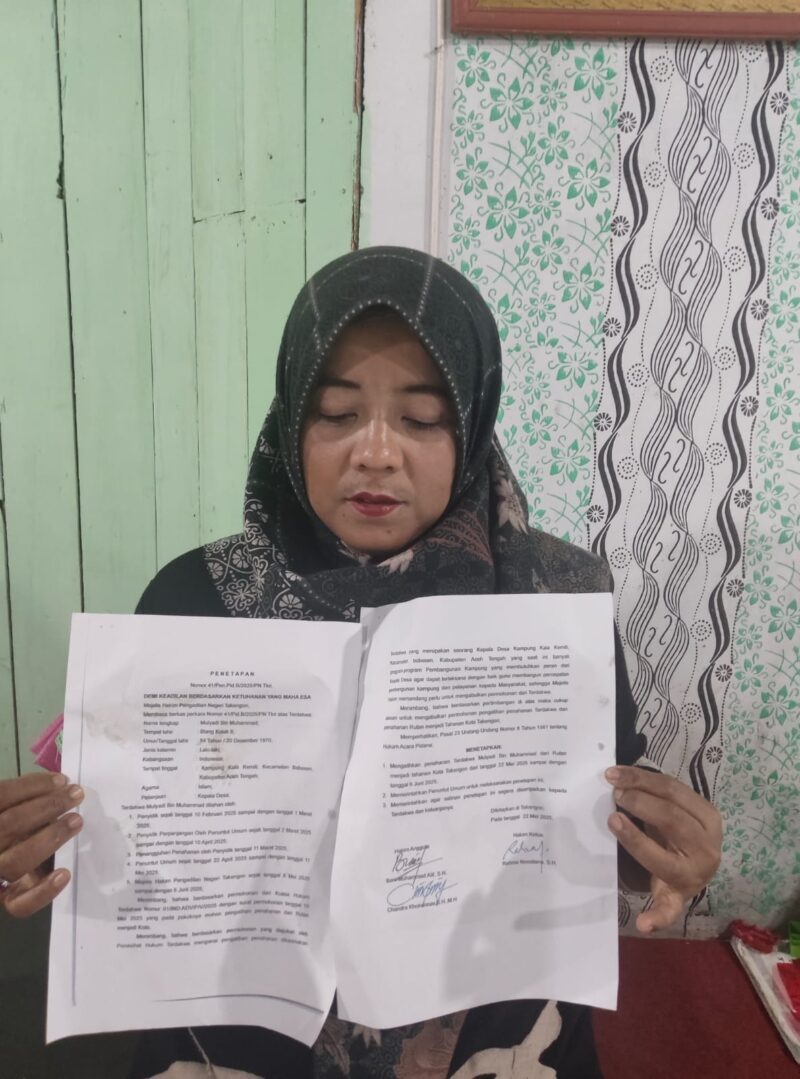 PENETAPAN
Nomor 41/Pen.Pid.B/2025/PN Tkn.
DEMI KEADILAN BERDASARKAN KETUHANAN YANG MAHA ESA
Majelis Hakim Pengadilan Negeri Takengon;
Membaca berkas perkara Nomor 41/Pid.B/2025/PN Tkn atas Terdakwa:
Nama lengkap : Mulyadi Bin Muhammad;
Tempat lahir : Blang Kolak II;
Umur/Tanggal lahir : 54 Tahun / 20 Desember 1970;
Jenis kelamin : Laki-laki;
Kebangsaan : Indonesia;
Tempat tinggal : Kampung Kala Kemili Kecamatan Bebesen,
Kabupaten Aceh Tengah;
Agama : Islam;
Pekerjaan : Kepala Desa;
Terdakwa Mulyadi Bin Muhammad ditahan oleh:
1. Penyidik sejak tanggal 10 Februari 2025 sampai dengan tanggal 1 Maret
2025;
2. Penyidik Perpanjangan Oleh Penuntut Umum sejak tanggal 2 Maret 2025
sampai dengan tanggal 10 April 2025;
3. Penangguhan Penahanan oleh Penyidik tanggal 11 Maret 2025;
4. Penuntut Umum sejak tanggal 22 April 2025 sampai dengan tanggal 11
Mei 2025;
5. Majelis Hakim Pengadilan Negeri Takengon sejak tanggal 8 Mei 2025
sampai dengan tanggal 6 Juni 2025;
Menimbang, bahwa berdasarkan permohonan dari Kuasa Hukum
Terdakwa Nomor dengan surat permohonan tanggal
Mei 2025 yang pada pokoknya mohon pengalihan penahanan dari Rutan
menjadi Kota;
Menimbang, bahwa berdasarkan permohonan yang diajukan oleh
Penasihat Hukum Terdakwa mengenai pengalihan penahanan dikarenakan
yang merupakan seorang Kepala Desa Kampung Kala Kemili,
Kecamatan Bebesen, Kabupaten Aceh Tengah yang saat ini banyak
program-program Pembangunan Kampung yang membutuhkan peran dari
Kepala Desa agar dapat terlaksana dengan baik guna membangun percepatan
pembangunan kampung dan pelayanan kepada Masyarakat, sehingga Majelis
Hakim memandang perlu untuk mengabulkan permohonan dari Terdakwa;
Menimbang, bahwa berdasarkan pertimbangan di atas maka cukup
alasan untuk mengabulkan permohonan pengalihan penahanan Terdakwa dari
tahanan Rutan menjadi Tahanan Kota Takengon;
Memperhatikan, Pasal 23 Undang-Undang Nomor 8 Tahun 1981 tentang
Hukum Acara Pidana;
MENETAPKAN:
1. Mengalihkan penahanan Terdakwa Mulyadi Bin Muhammad dari Rutan
menjadi tahanan Kota Takengon dari tanggal 22 Mei 2025 sampai dengan
tanggal 6 Juni 2025;
2. Memerintahkan Penuntut Umum untuk melaksanakan penetapan ini;
3. Memerintahkan agar salinan penetapan ini segera disampaikan kepada
Terdakwa dan keluarganya.
Ditetapkan di Takengon,
Pada tanggal 22 Mei 2025
Hakim Anggota
Hakim Ketua
Bani Muhammad Alif, S.H.
Rahma Novatiana, S.H.
Chandra Khoirunnas, S.H.,M.H.